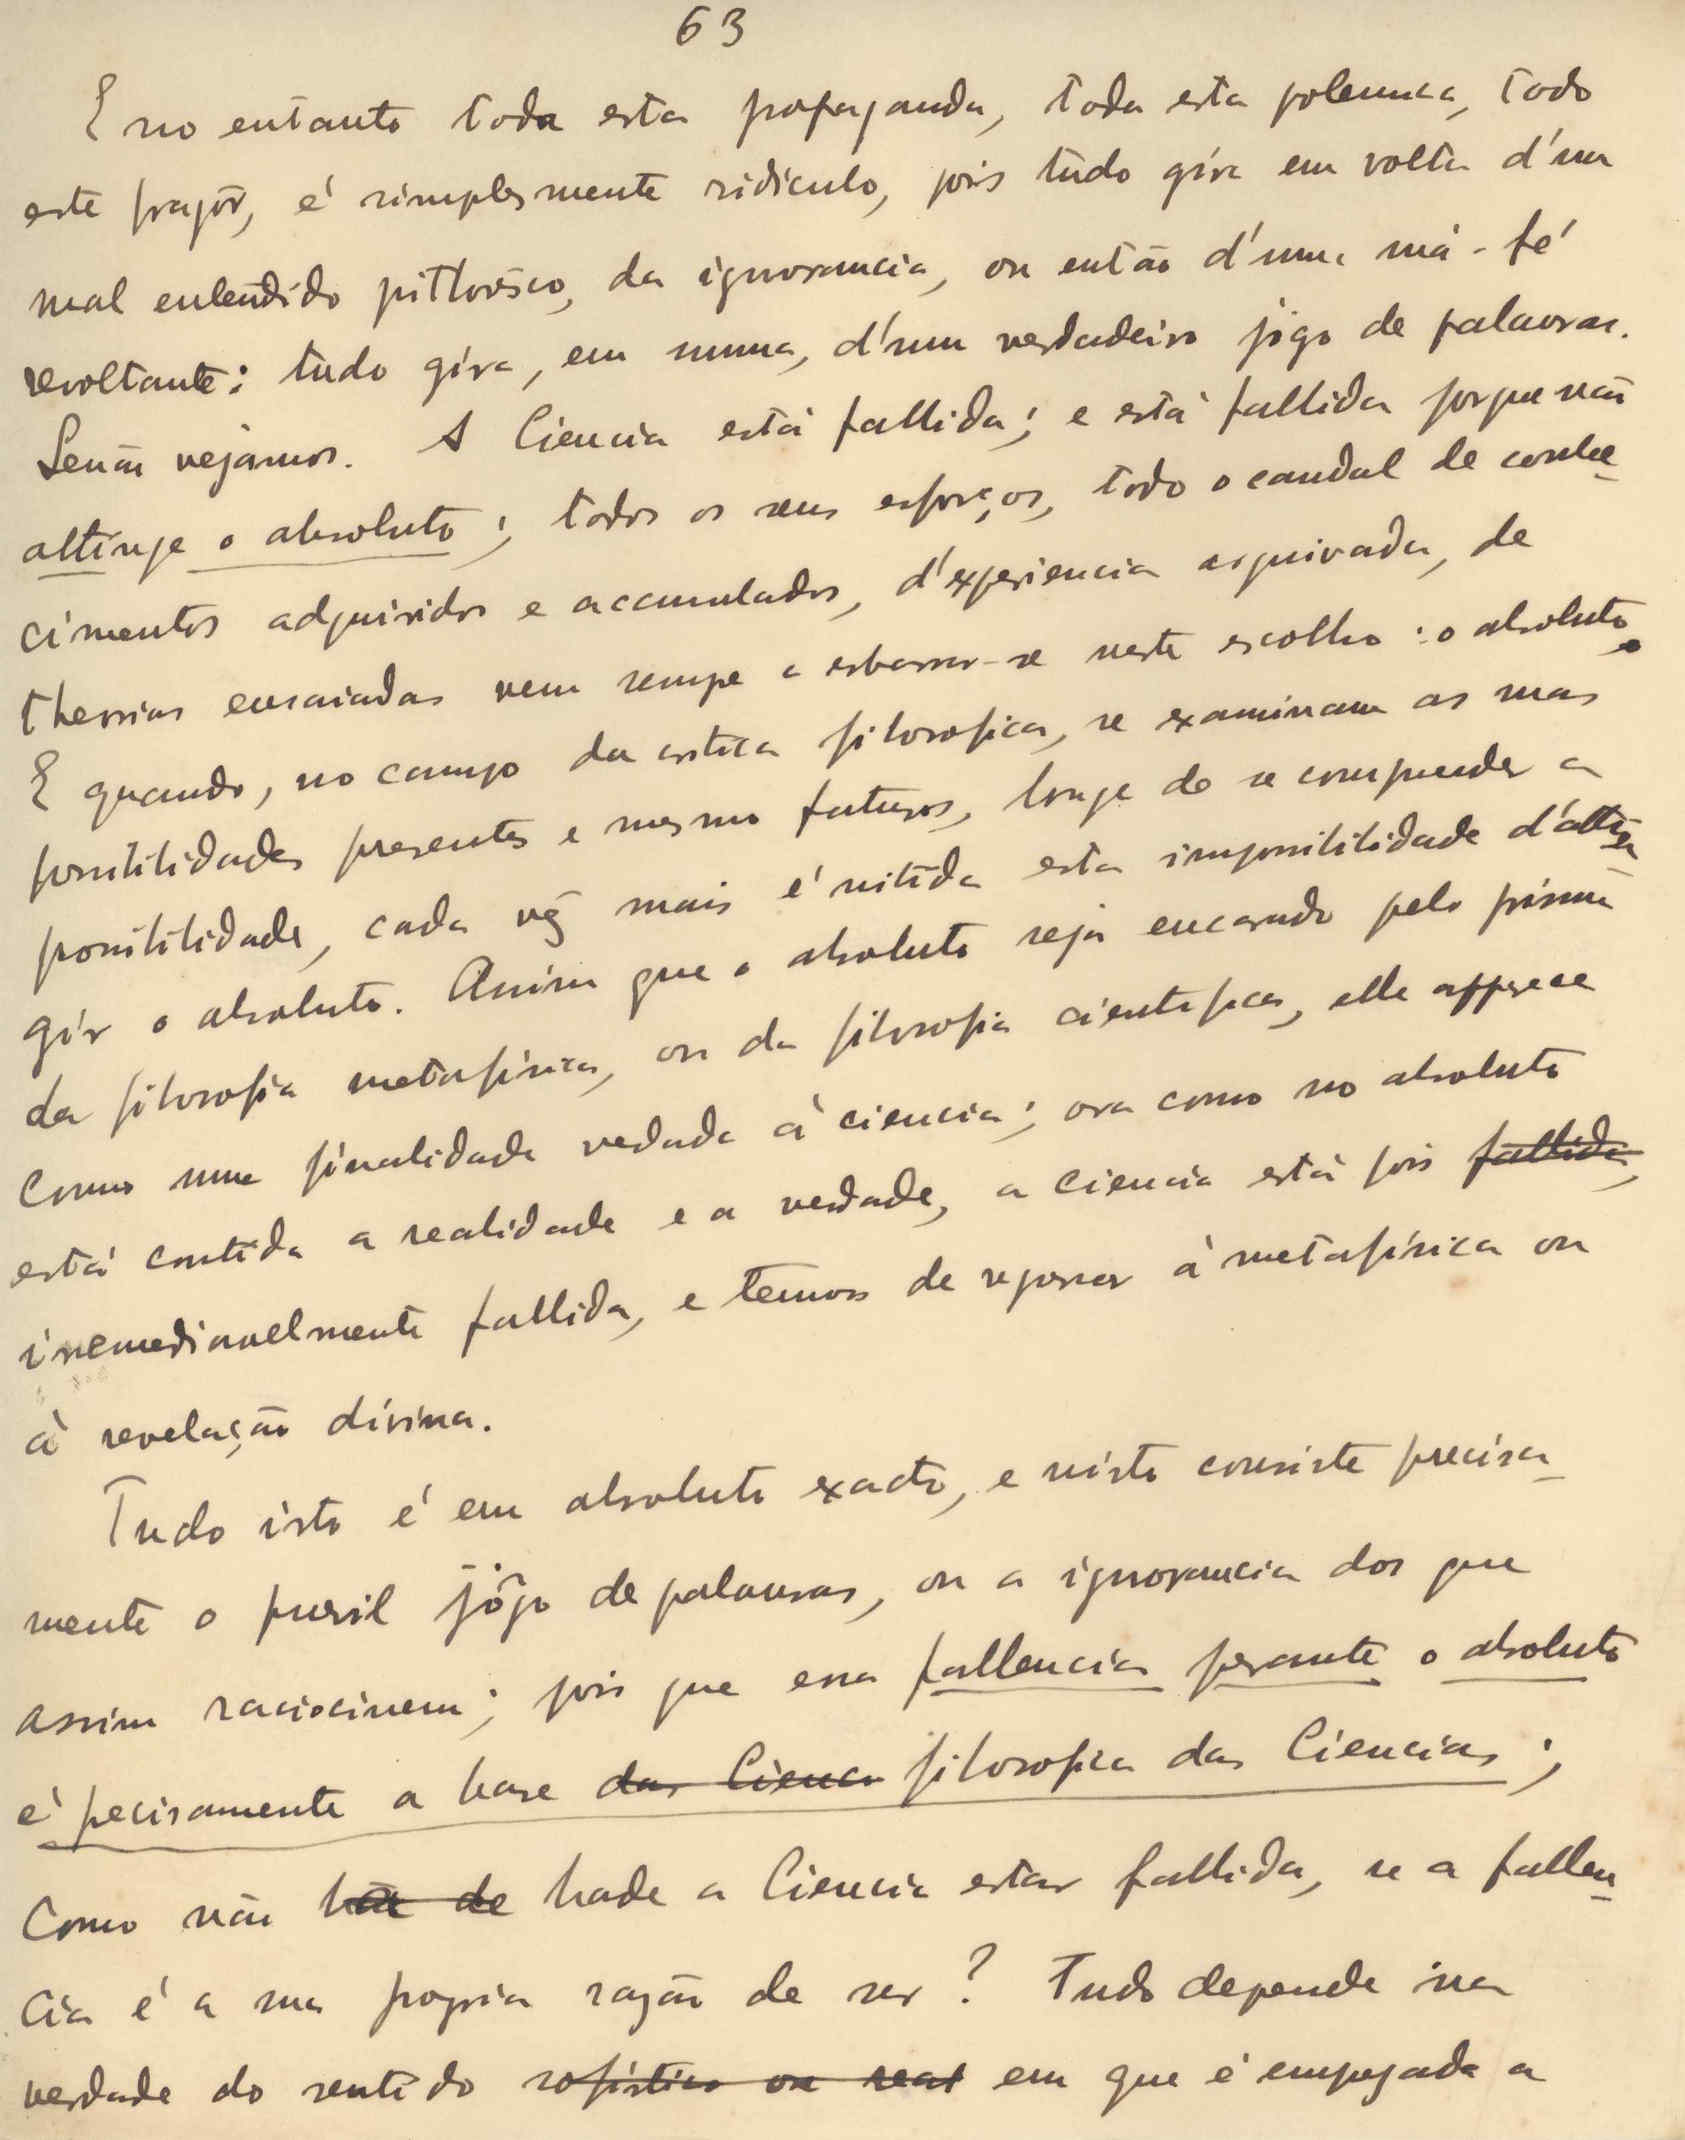 63
E no entanto toda esta propaganda, toda esta polemica, todo
este fragôr, é simplesmente ridiculo, pois tudo gira em volta d'um
mal entendido pittoresco, da ignorancia, ou então d'uma má-fé
revoltante: tudo gira, em summa, d'um verdadeiro jogo de palavras.
Senão vejamos. A Ciencia está fallida; e está fallida porque não
attinge o absoluto; todos os seus esforços, todo o caudal de conhe-
cimentos adquiridos e accumulados, d'experiencia arquivada, de
theorias ensaiadas vem sempre a esbarrar-se neste escolho: o absoluto.
E quando, no campo da critica filosofica, se examinam as mas
possibilidades presentes e mesmo futuras, longe de se comprehender a
possibilidade, cada vez mais é nitida esta impossibilidade d'attin-
gir o absoluto. Assim que o absoluto seja encarado pelo prisma
da filosofia metafisica, ou da filosofia cientifica, elle apparece
como uma finalidade vedada á ciencia; ora como no absoluto
está contida a realidade e a verdade, a ciencia está pois fallida,
irremediavelmente fallida, e temos de regressar á metafisica ou
á revelação divina.
Tudo isto é em absoluto exacto, e nisto consiste precisa-
mente o pueril jôgo de palavras, ou a ignorancia dos que
assim raciocinem; pois que essa fallencia perante o absoluto
é precisamente a base das Cienca filosofica das Ciencias;
Como não há de hade a Ciencia estar fallida, se a fallen-
cia é a sua propria razão de ser? Tudo depende na
verdade do sentido sofistico ou real em que é empregada a